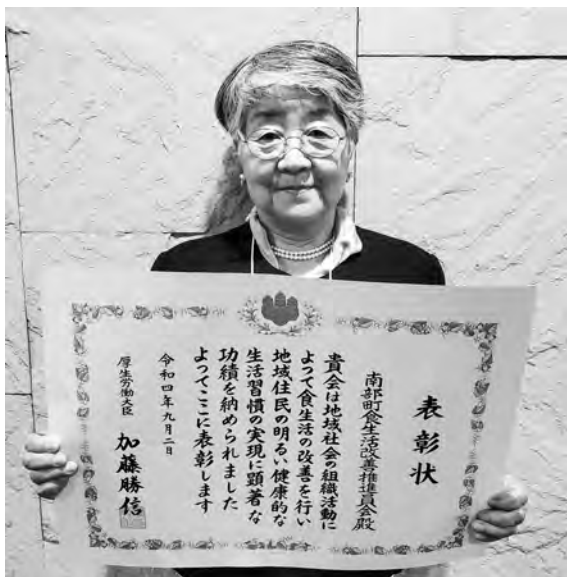 表彰状
南部町食生活改善推進員会殿
貴会は地域社会の組織活動に
よって食生活の改善を行い
地域住民の明るい健康的な
生活習慣の実現に顕著な
功績を納められました
よってここに表彰します
令和四年九月二日
厚生労働大臣 加藤勝信